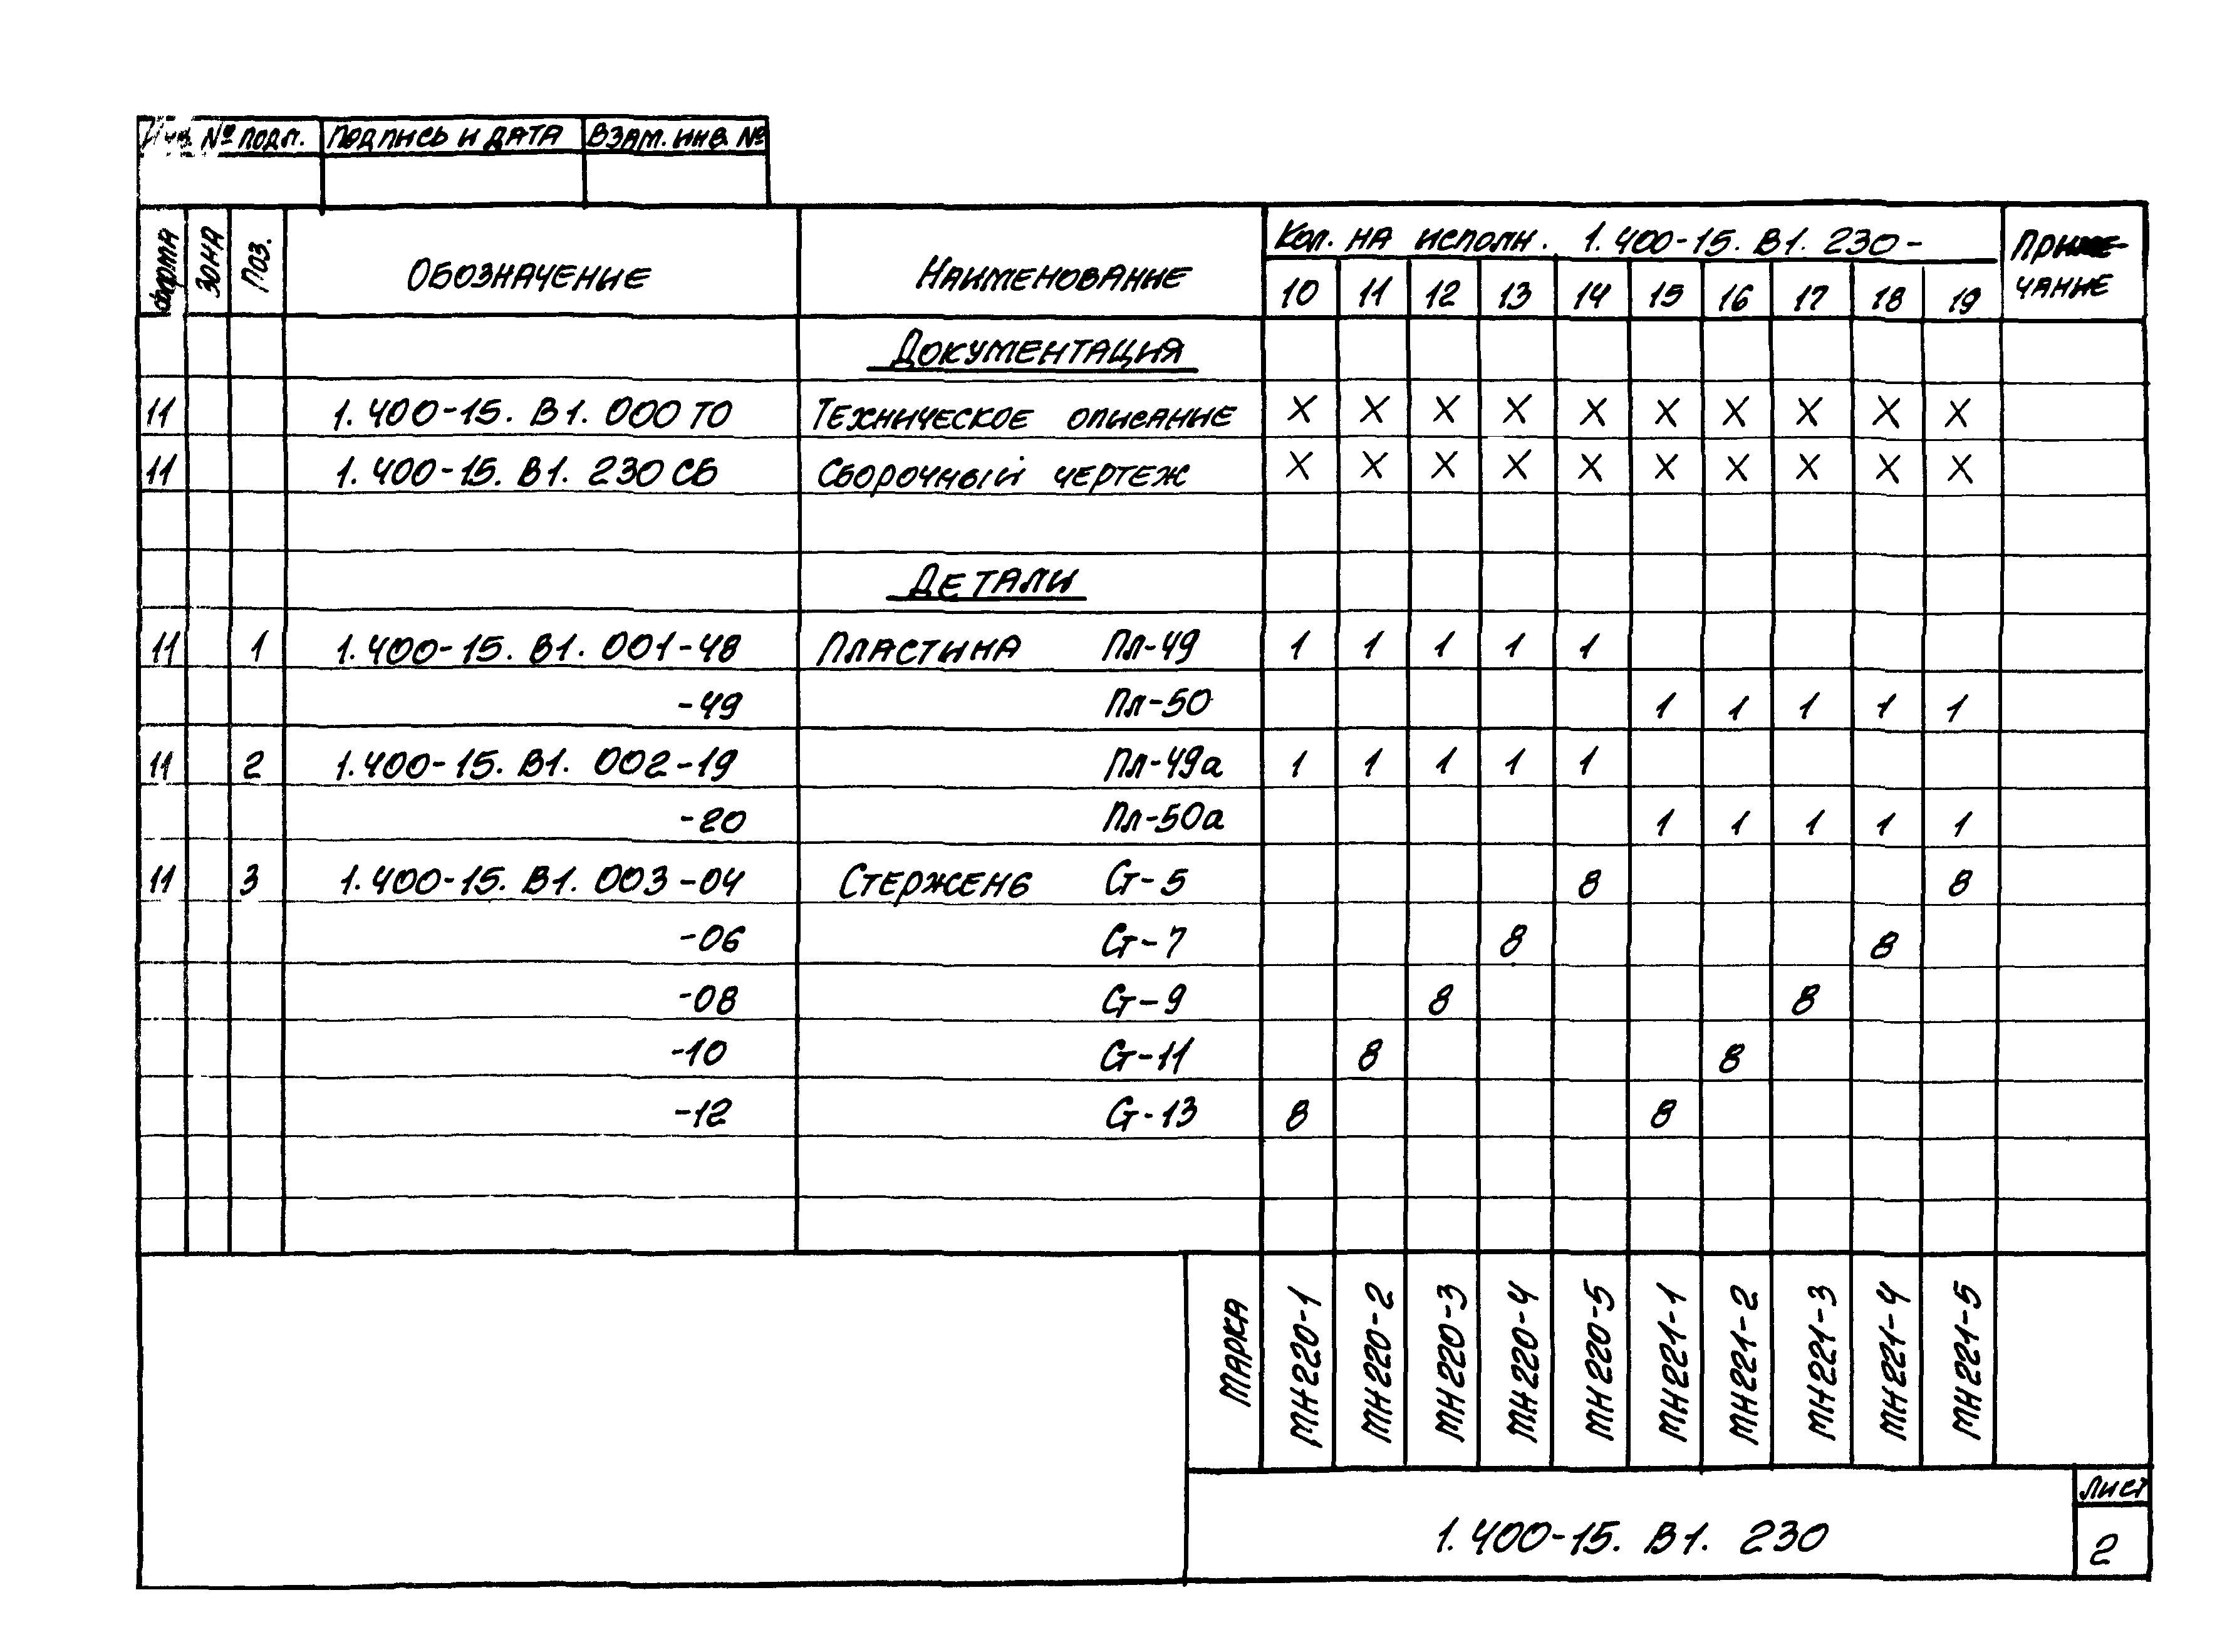 Инв. № подл. Подпись и дата Взам. инв. №
Форма Зона Поз. Обозначение Наименование Кол. на исполн. 1.400-15.В1.230- Примечание
10 11 12 13 14 15 16 17 18 19
Документация
11 1.400-15.В1.000 ТО Техническое описание X X X X X X X X X X
11 1.400-15.В1.230 СБ Сборочный чертеж X X X X X X X X X X
Детали
11 1 1.400-15.В1.001-48 Пластина Пл-49 1 1 1 1 1
-49 Пл-50 1 1 1 1 1
11 2 1.400-15.В1.002-19 Пл-49а 1 1 1 1 1
-20 Пл-50а 1 1 1 1 1
11 3 1.400-15.В1.003-04 Стержень Ст-5 8 8
-06 Ст-7 8 8
-08 Ст-9 8 8
-10 Ст-11 8 8
-12 Ст-13 8 8
Марка МН220-1 МН220-2 МН220-3 МН220-4 МН220-5 МН221-1 МН221-2 МН221-3 МН221-4 МН221-5
1.400-15.В1.230
Лист
2